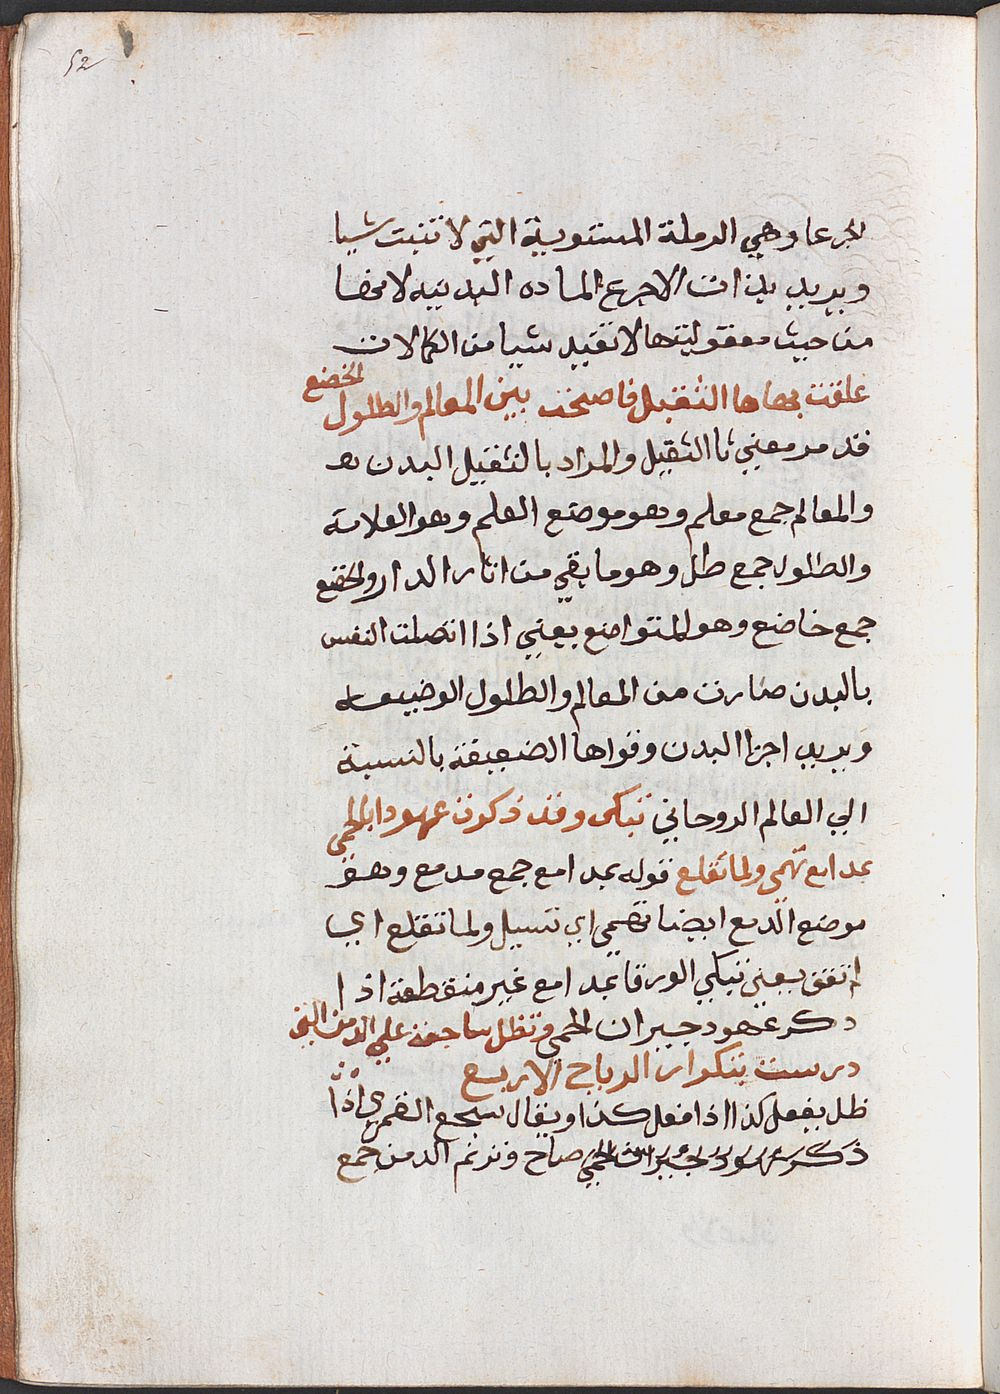 52
لجرعا وهي الرملة المستوية التي لا تنبت شيا
ويريد بذات الاجرع المادة البدنيه لانها
من حيث معقوليتها لا تفيد شيا من الكمالات
علقت بها ها الثقيل فاصبحت بين المعالم والطلول الخضع
قد مر معني ثا الثقيل والمراد بالثقيل البدن
والمعالم جمع معلم وهو موضع العلم وهو العلامة
والطلول جمع طلل وهو ما بقي من اثار الدار والخضع
جمع خاضع وهو المتواضع يعني اذا اتصلت النفس
بالبدن صارت من المعالم والطلول الوضيعه
ويريد اجزا البدن وقواها الضعيفة بالنسبة
الي العالم الروحاني تبكي وقد ذكرت عهودا بالحمي
بمدامع تهمي ولما تقلع قوله بمدامع جمع مدمع وهو
موضع الدمع ايضا تهمي اي تسيل ولما تقلع اي
لم تقف يعني تبكي الورقا بمدامع غير منقطعة اذا
ذكر عهود جيران الحمي وتظل ساجعة علي الدمن التي
درست بتكرار الرياح الاربع
ظل يفعل كذا اذا فعل كذا ويقال سجع القمري اذا
ذكر عهود لجيران الحمي صاح وترنم الدمن جمع